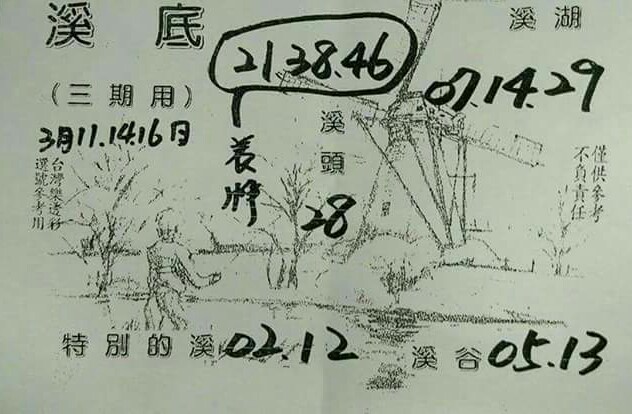 溪底
(三期用)
3月11.14.16日
台灣樂透彩
選號參考用
21 38.46
養牌
溪頭
28
溪湖
07.14.29
僅供參考
不負責任
特別的溪 02.12
溪谷 05.13